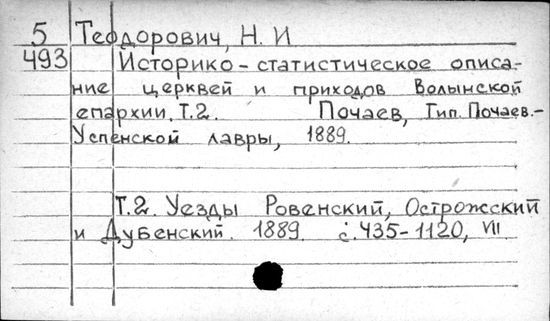 5 Теодорович, Н. И
493 Историко-статистическое описа-
ние церквей и приходов Волынской
епархии. Т.2. Почаев, Тип. Почаев.-
Успенской лавры, 1889.
Т.2. Уезды Ровенский, Острожский
и Дубенский. 1889. с.435-1120, VII.